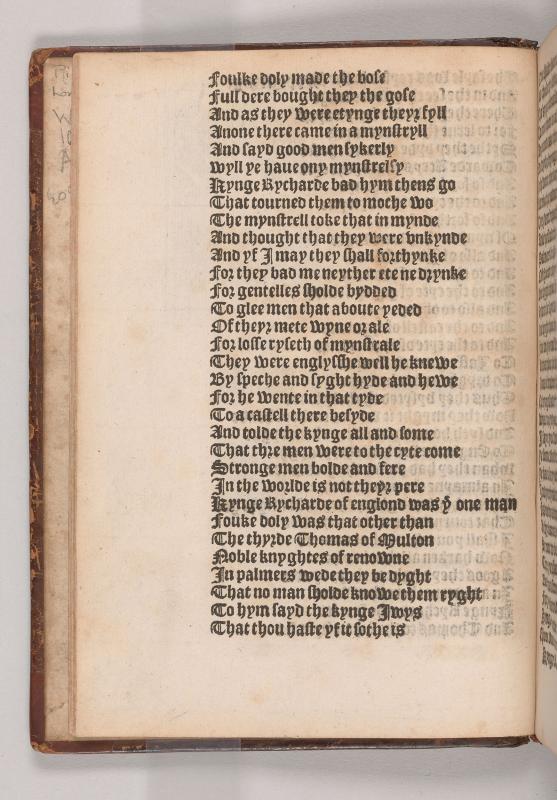 Foulke doly made the bose
Full dere bought they the gose
And as they were etynge theyr fyll
Anone there came in a mynstryll
And sayd good men sykerly
wyll ye haue ony mynstrelsy
Kynge Rycharde bad hym thens go
That tourned them to moche wo
The mynstrell toke that in mynde
And thought that they were vnkynde
And yf I may they shall forthynke
For they bad me neyther ete ne drynke
For gentelles sholde bydded
To glee men that aboute yeded
Of theyr mete wyne or ale
For losse ryseth of mynstrale
They were englysshe well he knewe
By speche and syght hyde and hewe
For he wente in that tyde
To a castell there besyde
And tolde the kynge all and some
That thre men were to the cyte come
Stronge men bolde and fere
In the worlde is not theyr pere
Kynge Rycharde of englond was yͤ one man
Fouke doly was that other than
The thyrde Thomas of Multon
Noble knyghtes of renowne
In palmers wede they be dyght
That no man sholde knowe them ryght
To hym sayd the kynge Iwys
That thou haste yf it sothe is